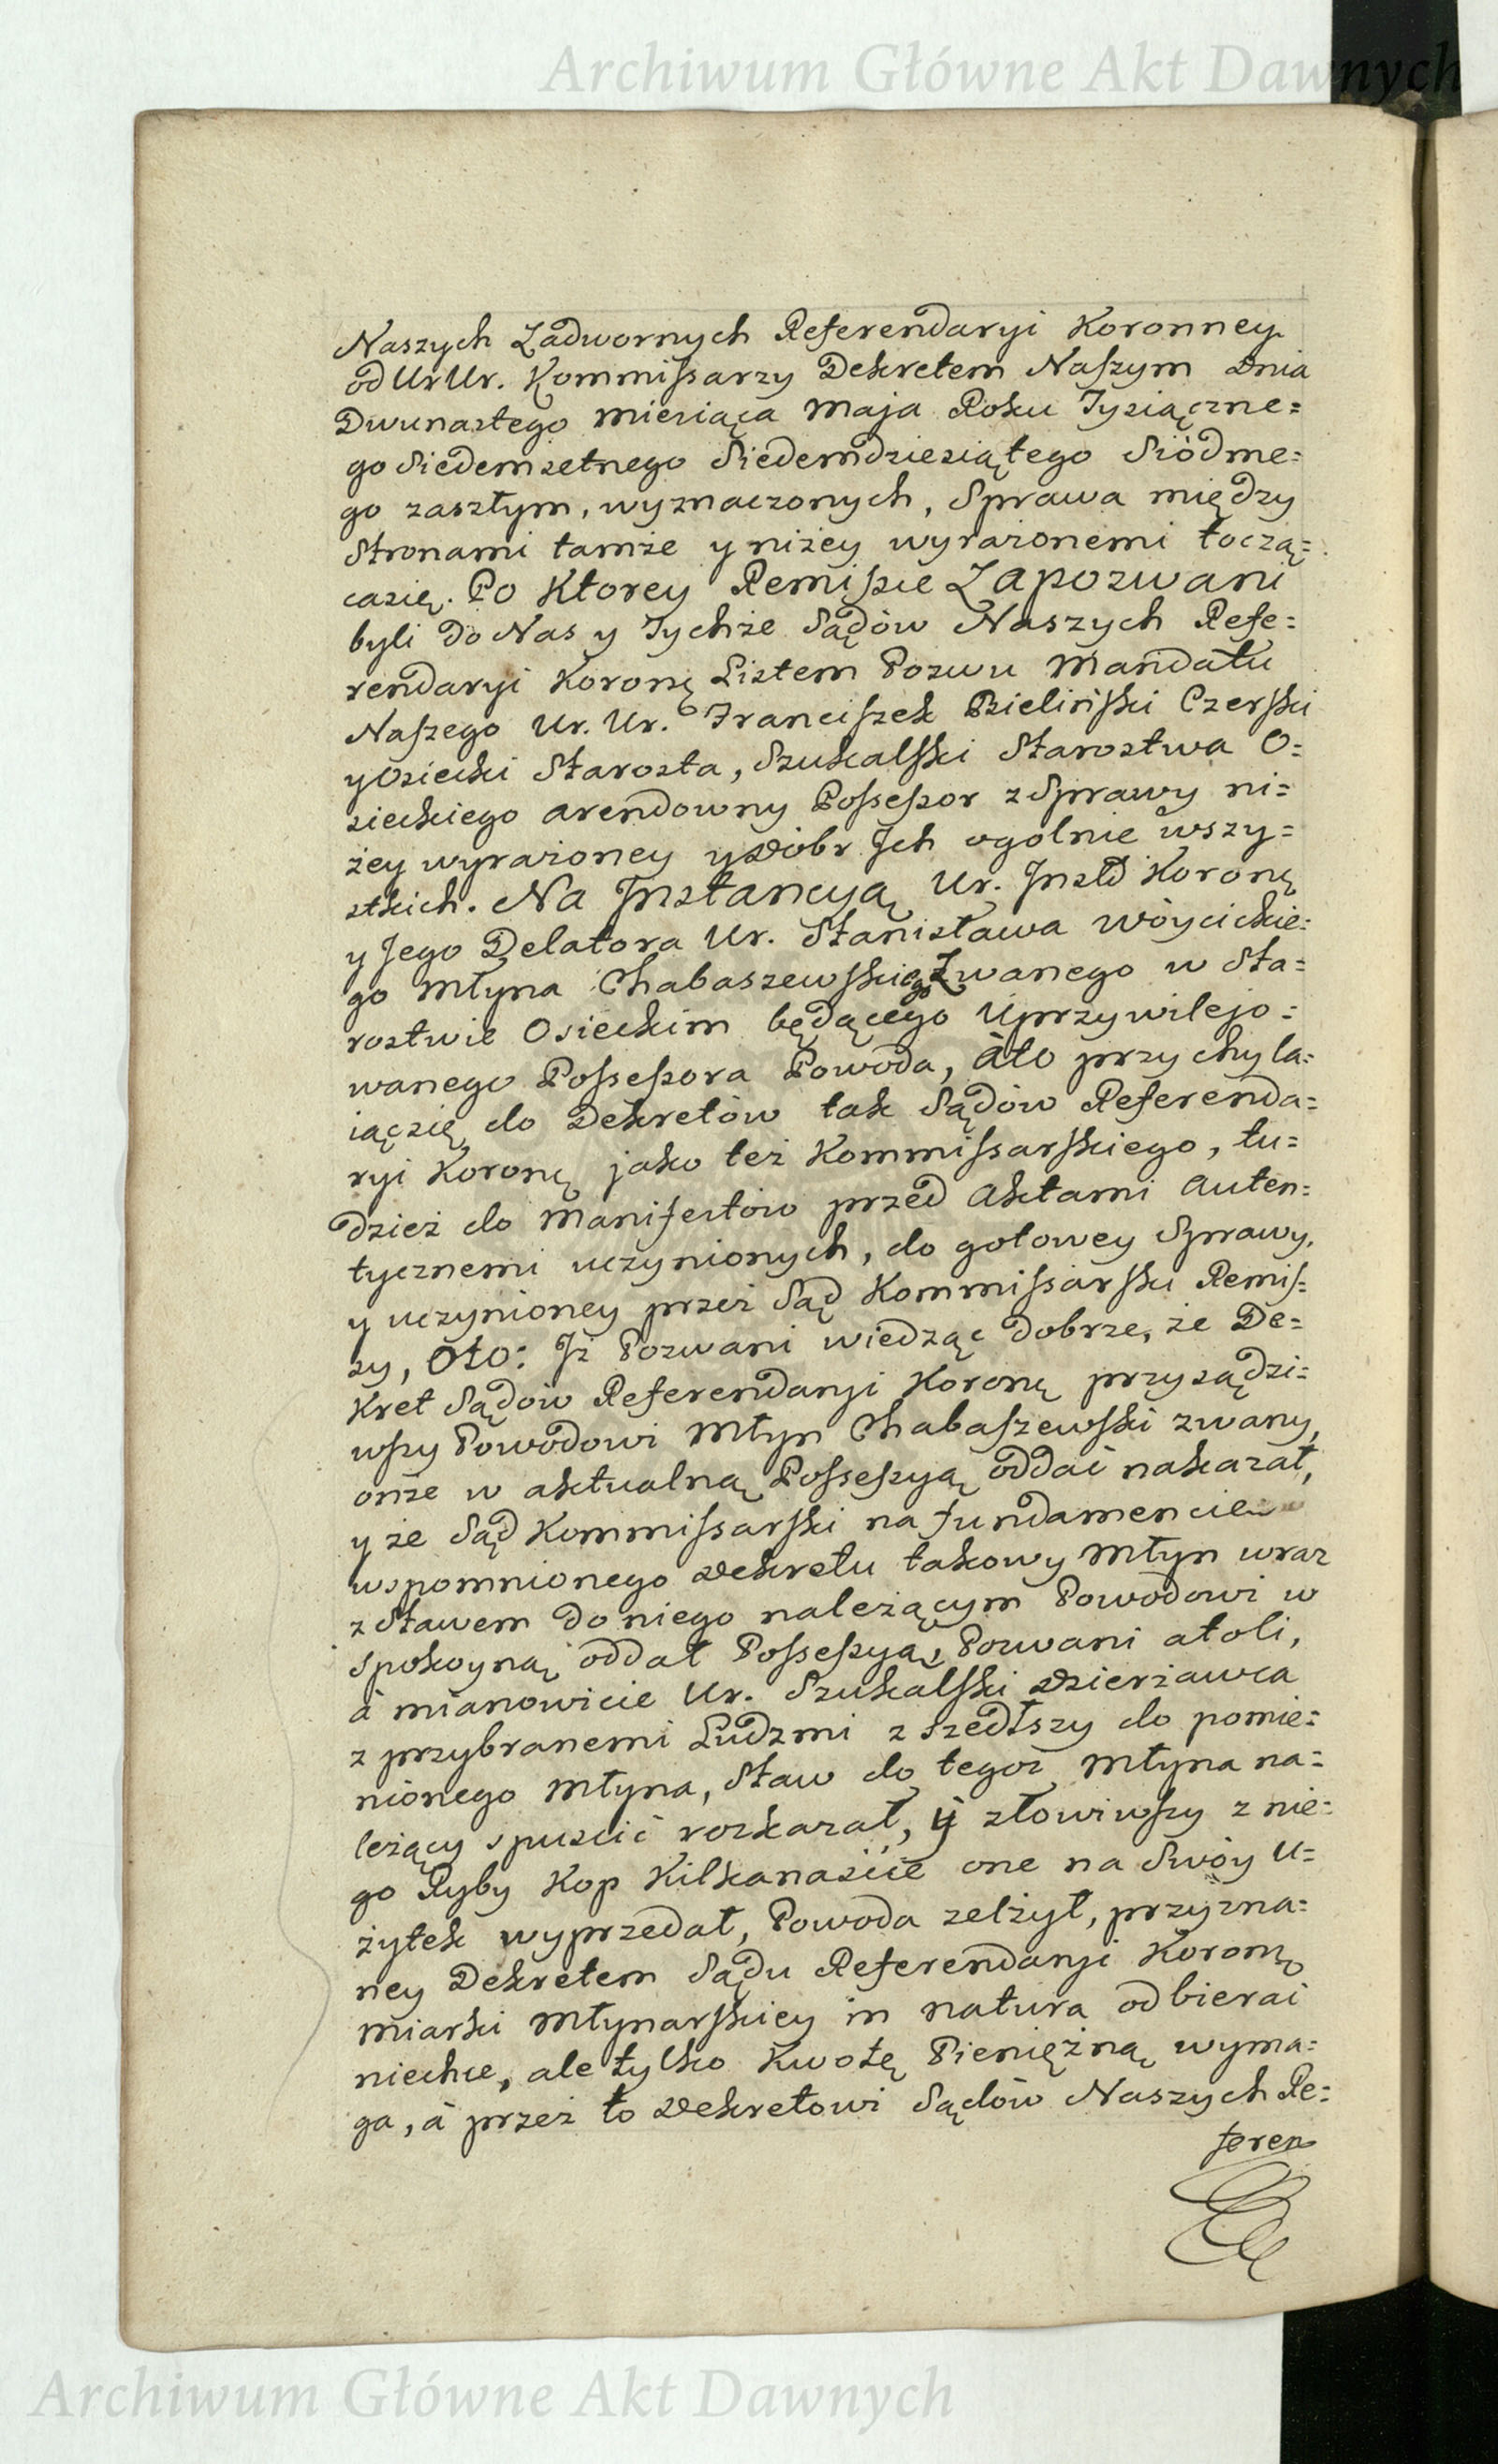 Archiwum Główne Akt Dawnych
Naszych Zadwornych Referendaryi Koronney
od Ur Ur. Kommissarzy Dekretem Naszym Dnia
Dwunastego Miesiąca Maja Roku Tysiączne=
go Siedemsetnego Siedemdziesiątego Siódme=
go zaszłym, wyznaczonych, Sprawa między
Stronami tamże y niżey wyrażonemi tocząc=
casię. Po Ktorey Remissie Zapozwani
byli do Nas y Tychże Sądów Naszych Refe=
rendaryi Koronę Listem Pozwu Mandatu
Naszego Ur. Ur. Franciszek Bieliński Czerski
y Osiecki Starosta, Szukalski Starostwa O=
sieckiego arendowny Possessor z Sprawy ni=
żey wyrażoney y Dóbr Ich ogolnie wszy=
stkich. Na Instancyą Ur. Instd Koronę
y Jego Delatora Ur. Stanisława Wóycickie=
go Młyna Chabaszewskiego Zwanego w Sta=
rostwie Osieckim będącego Uprzywilejo=
wanego Possessora Powoda, Ato przychyla=
iącsię do Dekretów tak Sądów Referenda=
ryi Koronę jako też Kommissarskiego, tu=
dzież do Manifestów przed Aktami Auten=
tycznemi uczynionych, do gotowey Sprawy,
y uczynioney przez Sąd Kommissarski Remis=
sy, Oto: Iż Pozwani wiedząc dobrze, że De=
kret Sądów Referendaryi Koronę przysądzi=
wszy Powodowi Młyn Chabaszewski zwany,
onże w aktualną Possessyą oddać nakazał,
y że Sąd Kommissarski na fundamencie
wspomnionego Dekretu takowy Młyn wraz
z Stawem do niego należącym Powodowi w
spokoyną oddał Possessyą, Pozwani atoli,
á mianowicie Ur. Szukalski Dzierżawca
z przybranemi Ludzmi zszedłszy do pomie=
nionego Młyna, Staw do tegoż Młyna na=
leżący spuścić rozkazał, ÿ złowiwszy z nie=
go Ryby Kop Kilkanaście one na Swóy u=
żytek wyprzedał, Powoda zelżył, przyzna=
ney Dekretem Sądu Referendaryi Koronę
miarki Młynarskiey in natura odbierać
niechce, ale tylko Kwotę Pieniężną wyma=
ga, á przez to Dekretowi Sądów Naszych Re=
feren
Archiwum Główne Akt Dawnych